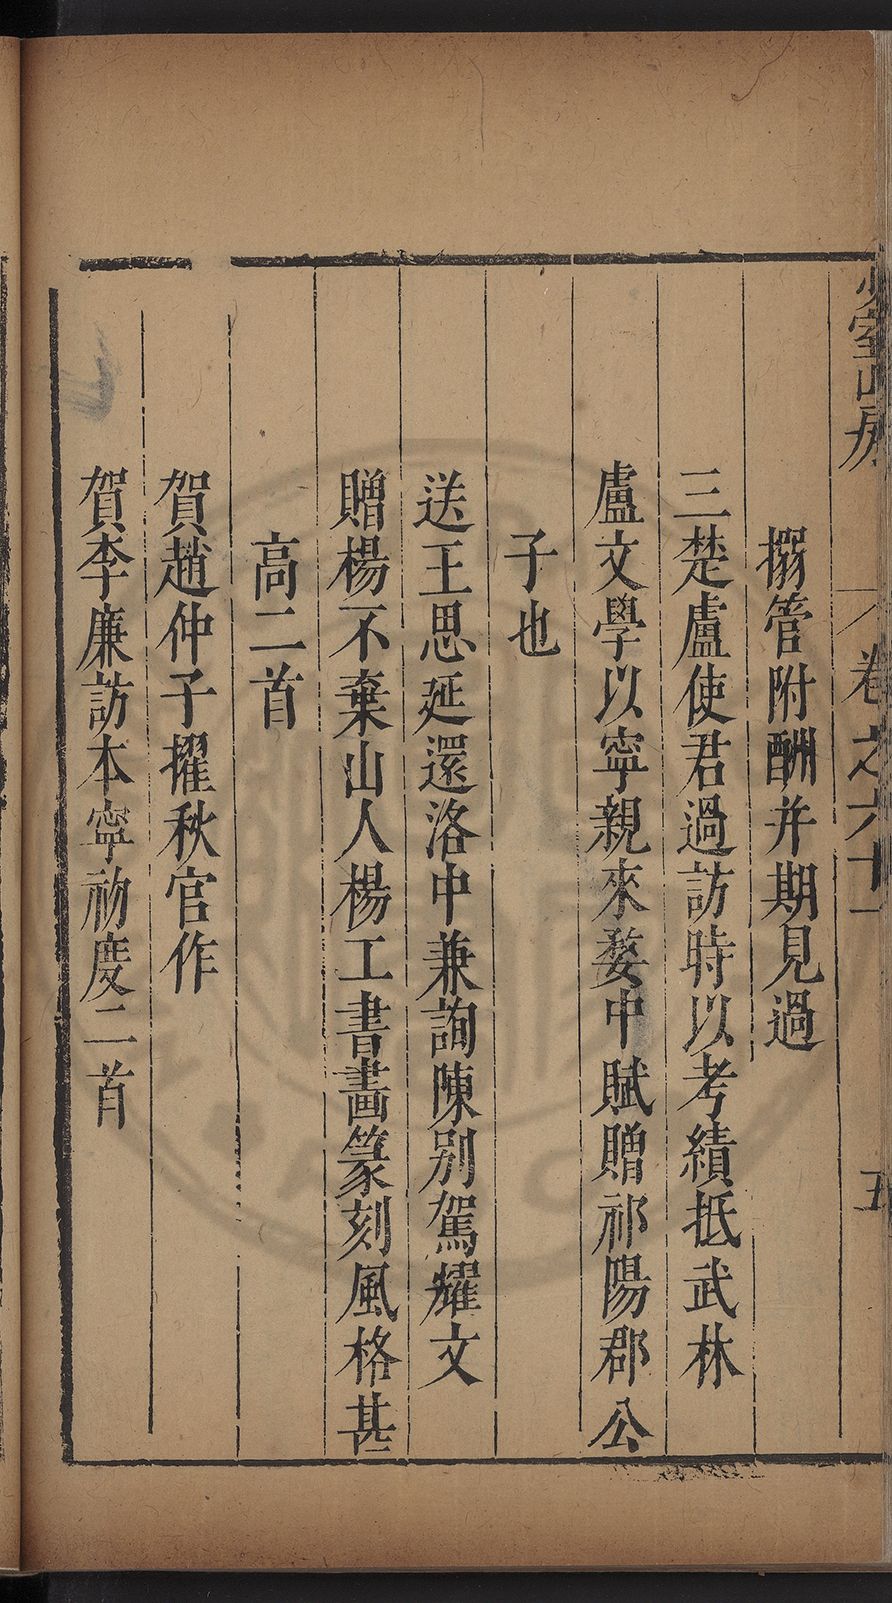 少室山房
卷之六十一
五
搦管附酬并期見過
三楚盧使君過訪時以考績抵武林
盧文學以寧親來婺中賦贈祁陽郡公
子也
送王思延還洛中兼詢陳别駕耀文
贈楊不棄山人楊工書畫篆刻風格甚
高二首
賀趙仲子擢秋官作
賀李廉訪本寧初度二首